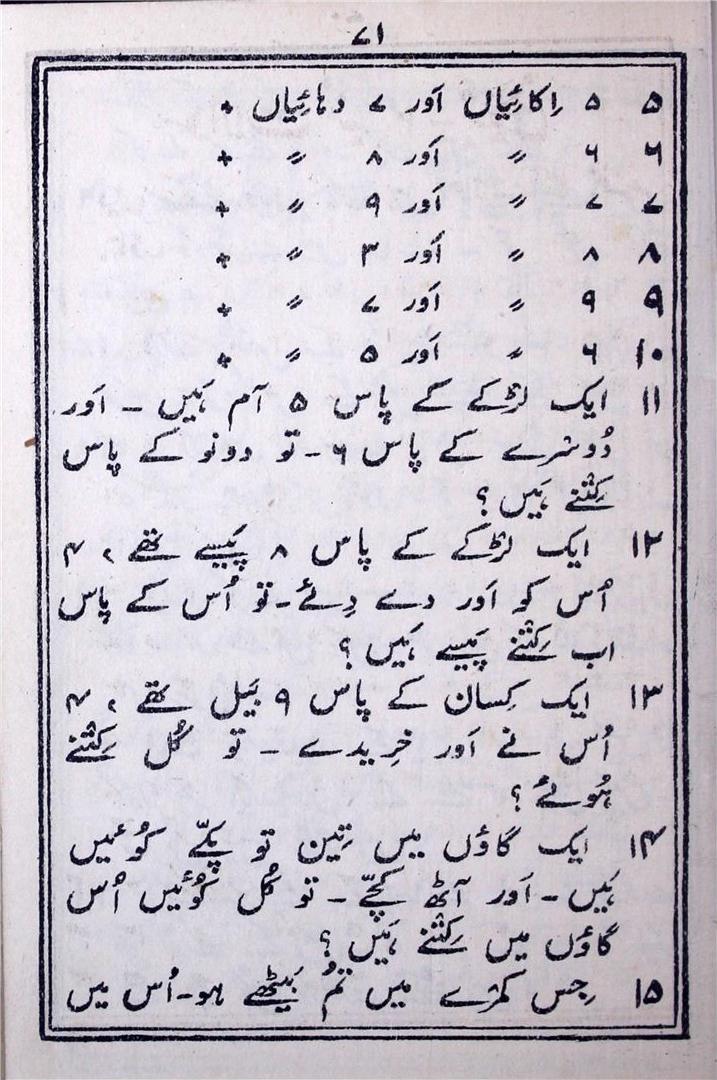 ۷۱
۵ ۵ اِکائِیاں اَور ۷ دہائِیاں +
۶ ۶ ״ اَور ۸ ״ +
۷ ۷ ״ اَور ۹ ״ +
۸ ۸ ״ اَور ۳ ״ +
۹ ۹ ״ اَور ۷ ״ +
۱۰ ۶ ״ اَور ۵ ״ +
۱۱ ایک لڑکے کے پاس ۵ آم ہَیں ۔ اَور
دُوسْرے کے پاس ۶ ۔ تو دونو کے پاس
کِتْنے ہَیں ؟
۱۲ ایک لڑکے کے پاس ۸ پَیسے تھے ، ۴
اُس کو اَور دے دِئے ۔ تو اُس کے پاس
اب کِتْنے پَیسے ہَیں ؟
۱۳ ایک کِسان کے پاس ۹ بَیل تھے ، ۴
اُس نے اَور خرِیدے ۔ تو کُل کِتْنے
ہُوئے ؟
۱۴ ایک گاؤں میں تِین تو پکّے کوُئیں
ہَیں ۔ اَور آٹھ کچّے ۔ تو کُل کوُئیں اُس
گاؤں میں کِتْنے ہَیں ؟
۱۵ جِس کمْرے میں تُم بَیٹھے ہو ۔ اُس میں